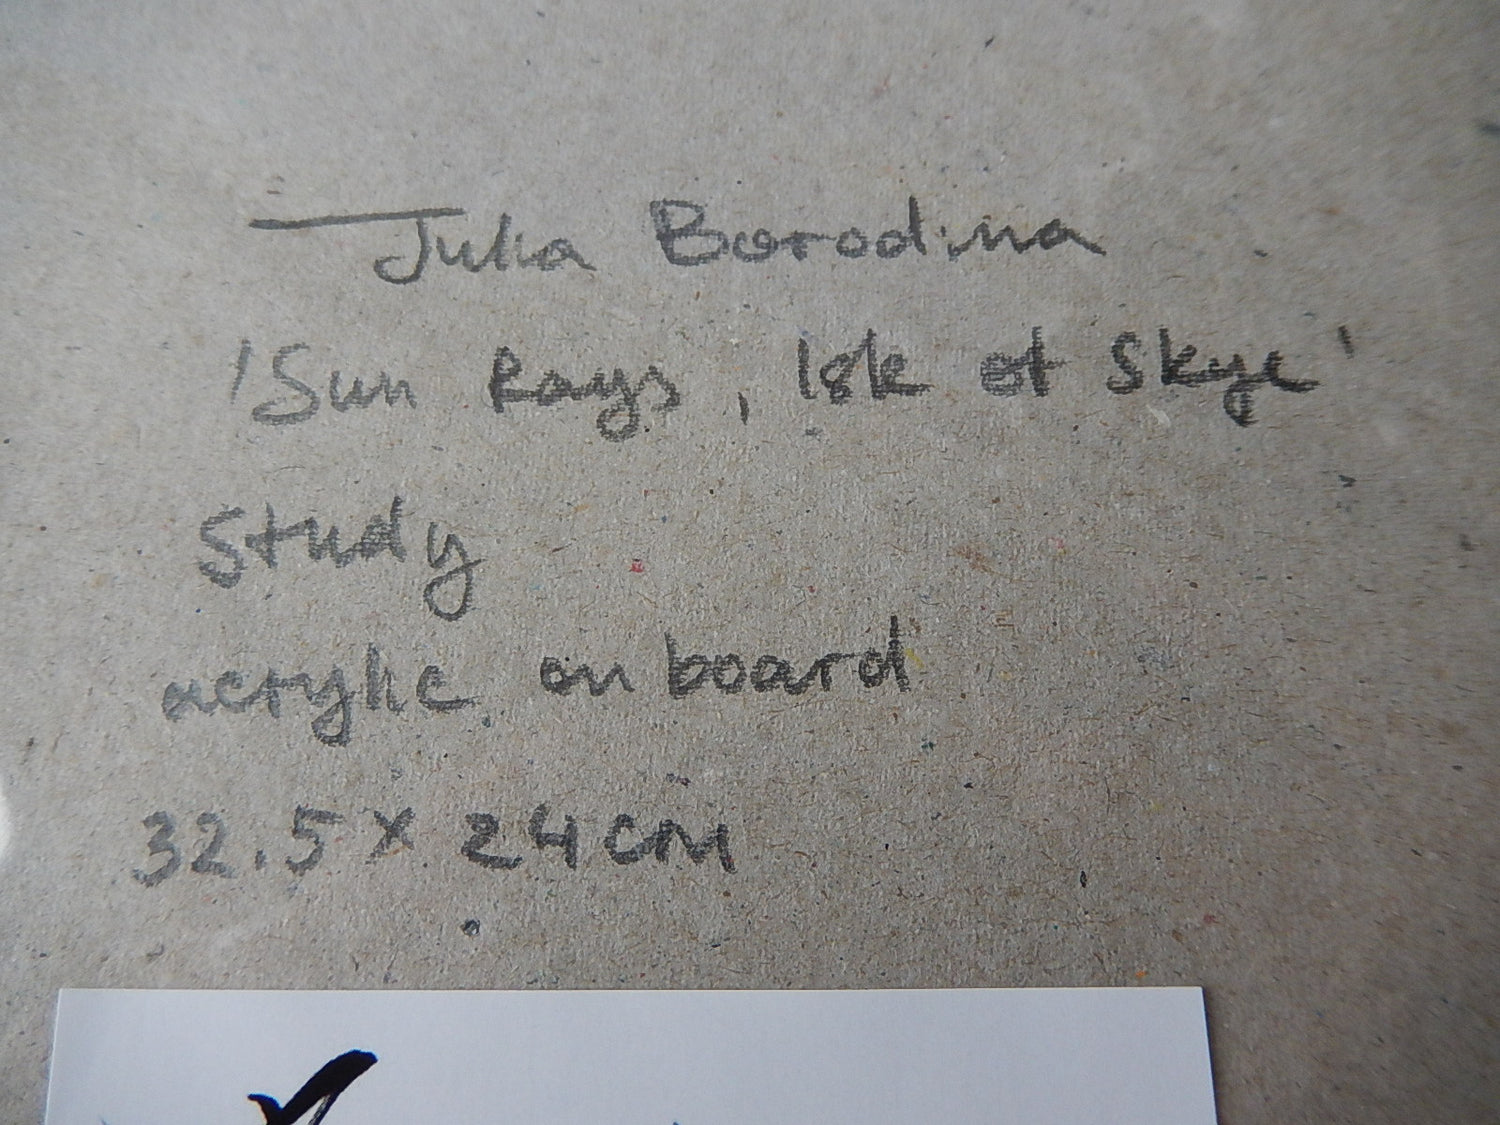 Julia Borodina
'Sun Rays, Isle of Skye'
Study
acrylic on board
32.5 x 24 cm